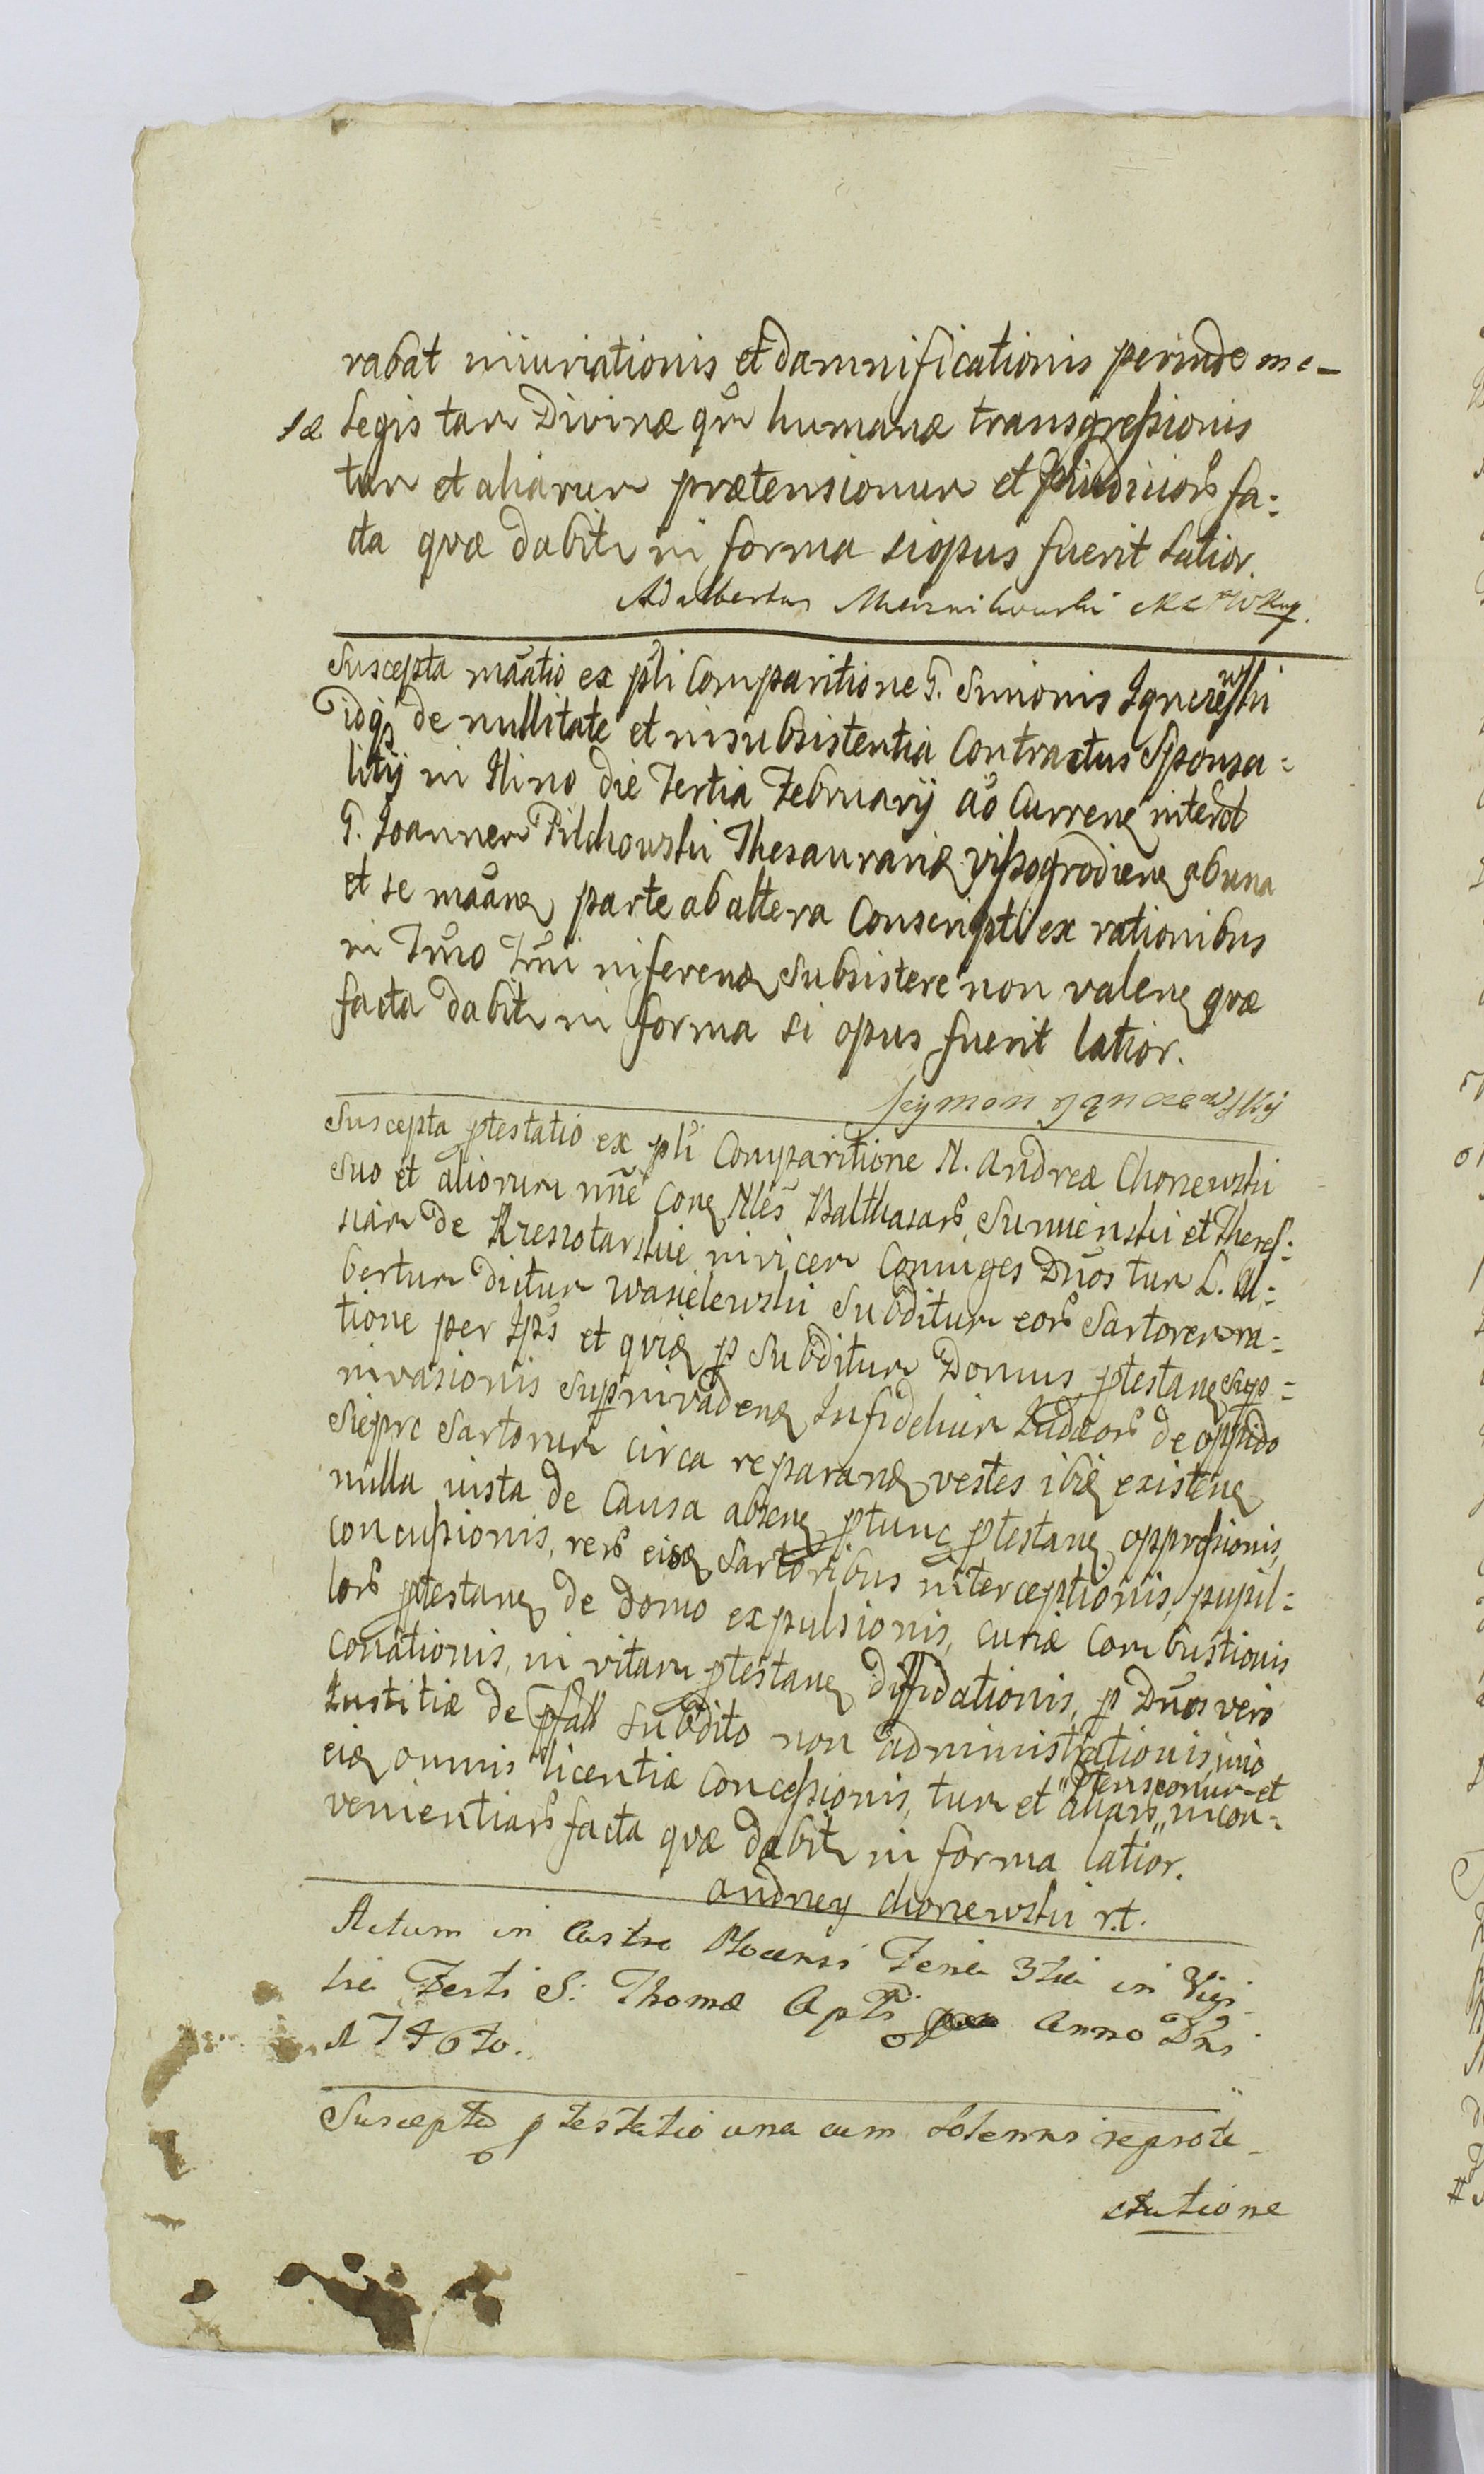 rabat iniuriationis et damnificationis perinde me-
sæ Legis tam Divinæ qm̃ humanæ transgressionis
tum et aliarum prætensionum et præiudiciorũ fa:
cta quæ dabitr in forma si opus fuerit latior.
Adalbertus
Suscepta mãatio ex pñli Comparitione G. Simonis
idq3 de nullitate et insubsistentia Contractus Sponsa=
litij in Ilino die Tertia February aõ Curren interõt
G. Joannem Pilchowski Thesaurariũ Vissogrodien ab una
et se mãan parte ab altera Conscripti ex rationibus
in Trño Trñi inferen Subsistere non valen quæ
facta dabitr in forma si opus fuerit latior.
Szymon
Suscepta ptestatio ex pñli Comparitione N. Andreæ Chorzewski
suo et aliorum nñe Con Nles Balthasarũ Sumienski et Theres:
siam de invicem Coniuges Dños tum L. Al:
bertum dictum Wasielewski Subditum eorũ Sartorem ra:
tione per Ipsũ et p Subditum Domus ptestan sup=
invasionis supinvaden Infidelium Iudæorũ de oppido
Sieprc Sartorum circa reparan vestes ibi existen
nulla iusta de Causa absen ptunc ptestan oppressionis,
concussionis, rerũ Sartoribus interceptionis, pupil=
lorũ ptestan de domo expulsionis, curiæ Combustionis
conationis, in vitam ptestan diffidationis, p Dños vero
Iustitiæ de pfato subdito non administrationis, imo
ei omnis licentiæ Concessionis, tum et aliarũ „ptensionum et„ incon=
venientiarũ facta quæ dabitr in forma latior.
Andrzey Chorzewski r.t.
Actum in Castro Plocensi Feria 3tia in Vigi-
lia Festi S: Thomæ Aptli Anno Dni
1740to.
Suscepta ptestatio una cum solenni reprote-
statione